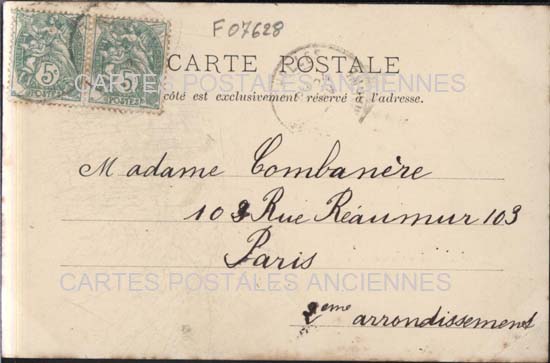 F 07628
5c 5c
POSTES POSTES
CARTE POSTALE
CARTES POSTALES ANCIENNES
côté est exclusivement réservé à l'adresse.
Madame Combanère
103 Rue Réaumur 103
Paris
CARTES POSTALES ANCIENNES
2eme arrondissement